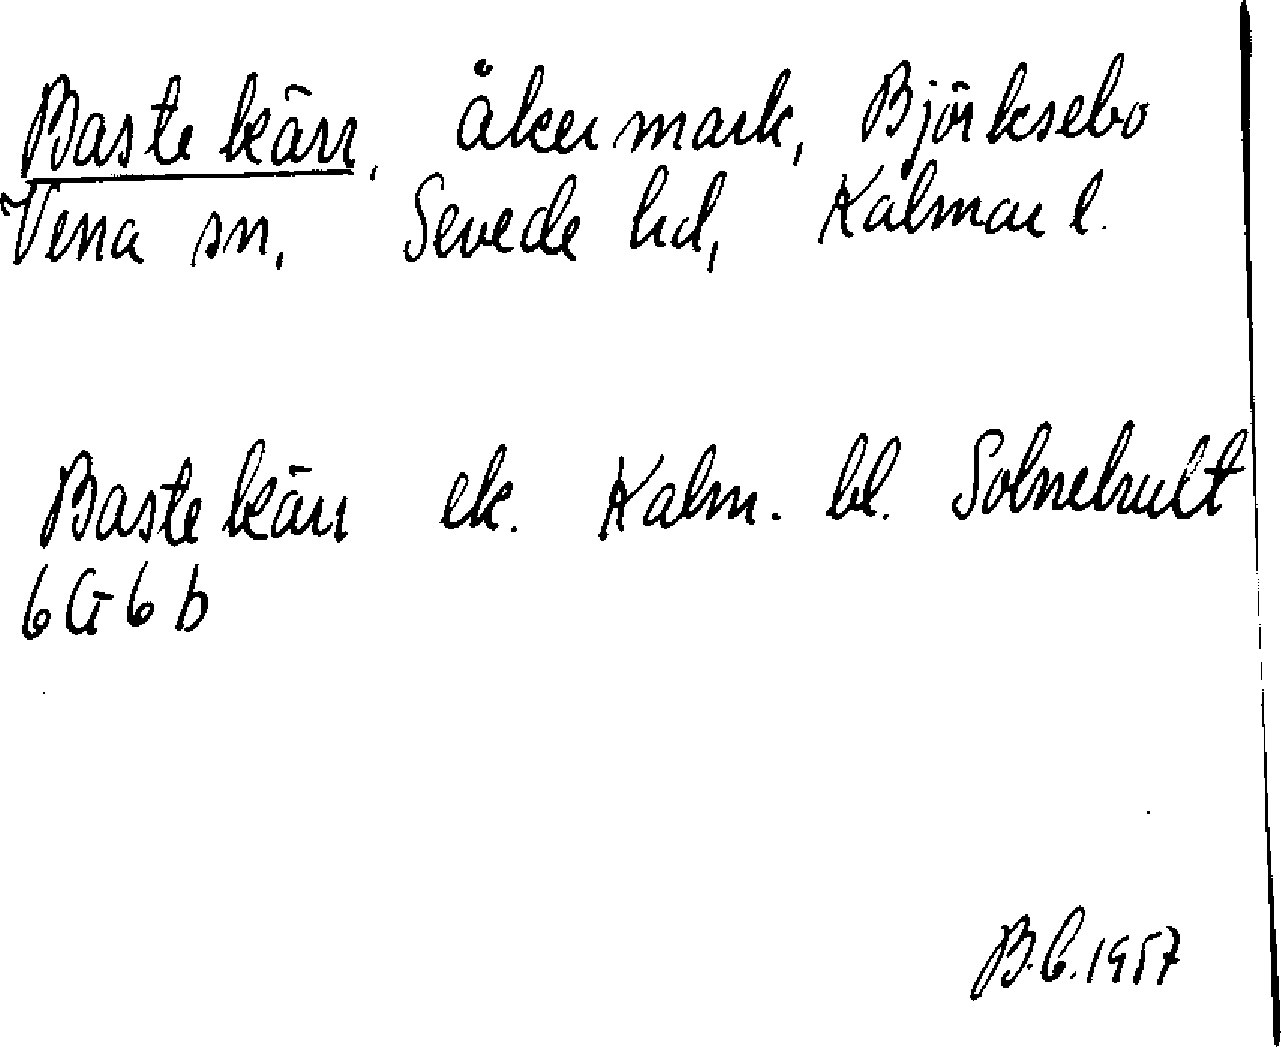 Bastekärr, åkermark, Björksebo
Vena sn, Sevede hd, Kalmar l.
Bastekärr ek. Kalm. bl. Solnehult
6G6b
B.C.1957